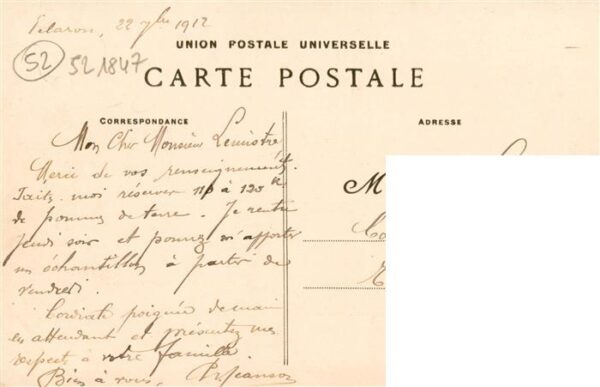 Eclaron, 22 7bre 1912
UNION POSTALE UNIVERSELLE
52 521847
CARTE POSTALE
CORRESPONDANCE
ADRESSE
Mon Cher Monsieur
Merci de vos renseignements.
Faites moi réserver 110 à 120 k
de pommes de terre. Je rentre
jeudi soir et pourrez m'apporter
un échantillon à partir de
vendredi.
Cordiale poignée de main
en attendant et présentez mes
respects à votre famille
Bien à vous,
M